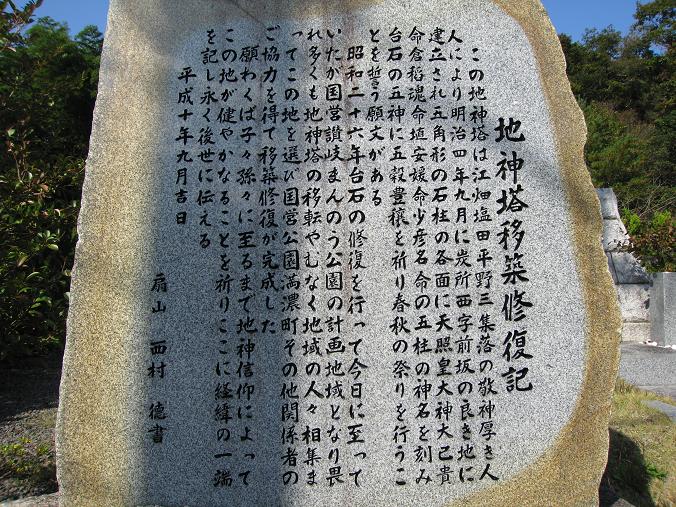 地神塔移築修復記
この地神塔は江畑塩田平野三集落の敬神厚き人
人により明治四年九月に炭所西字前坂の良き地に
建立され五角形の石柱の各面に天照皇大神大己貴
命倉稲魂命埴安媛命少彦名命の五柱の神名を刻み
台石の五神に五穀豊穣を祈り春秋の祭りを行うこ
とを誓う願文がある
昭和二十六年台石の修復を行って今日に至って
いたが国営讃岐まんのう公園の計画地域となり畏
れ多くも地神塔の移転やむなく地域の人々相集ま
ってこの地を選び国営公園満濃町その他関係者の
ご協力を得て移築修復が完成した
願わくば子々孫々に至るまで地神信仰によって
この地が健やかなることを祈りここに経緯の一端
を記し永く後世に伝える
平成十年九月吉日
扇山 西村 徳書